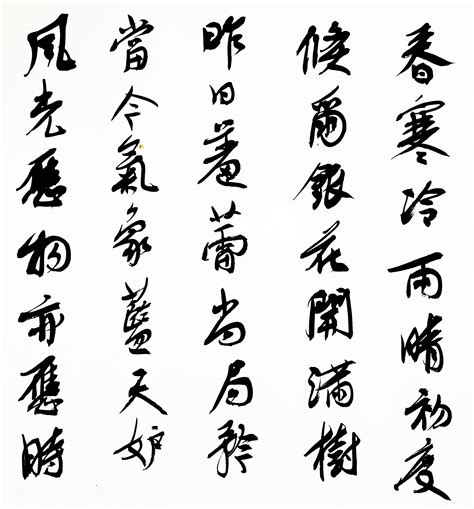 春寒冷雨晴初度
倏爾銀花開滿樹
昨日羞蕾尚局矜
當今氣象藍天妒
風光應物亦應時